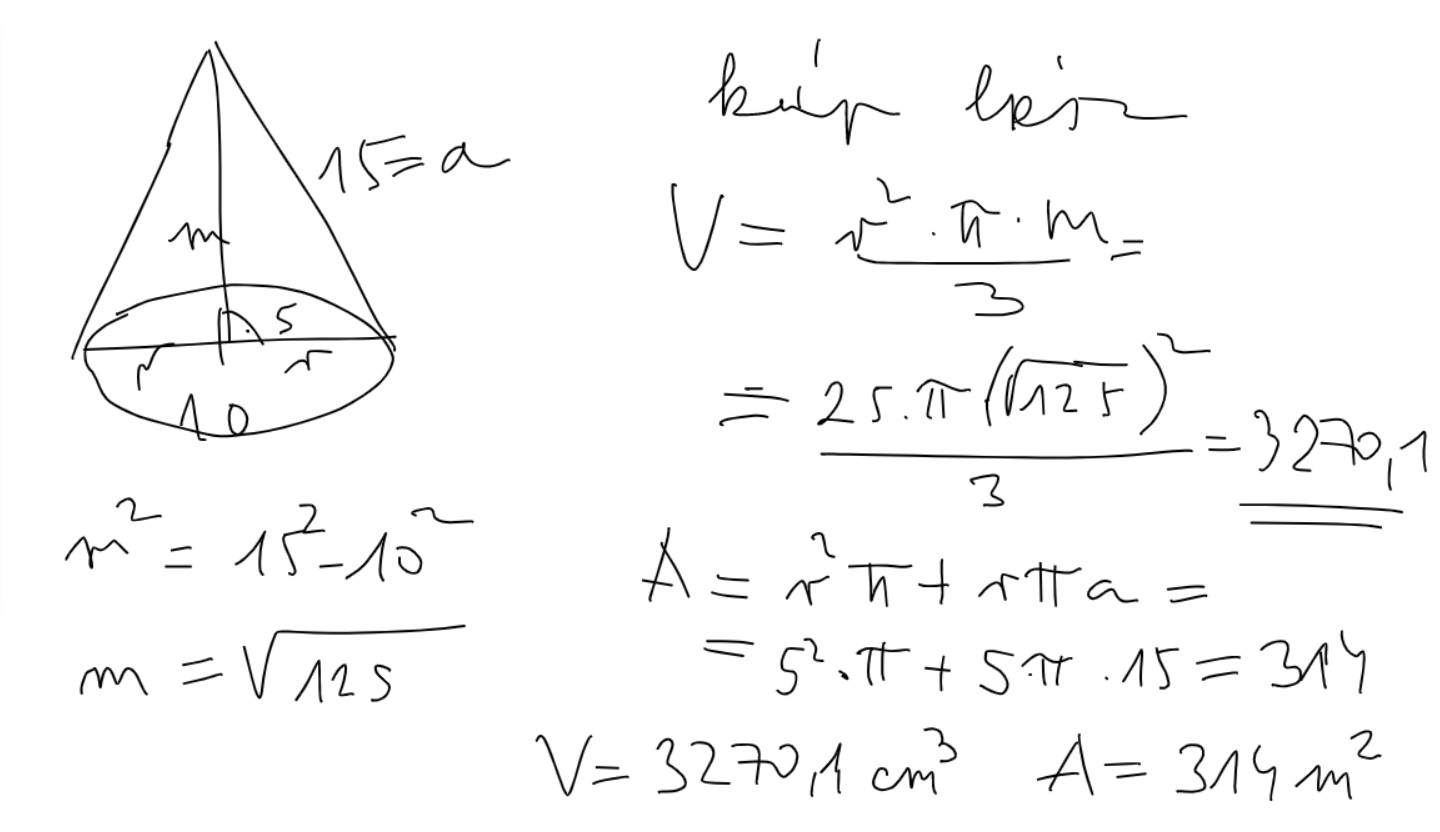 15 = a
m
5
r r
10
m² = 15² - 10²
m = √125
kúp
V = r² · π · m / 3 =
= 25 . π (√125)² / 3 = 3270,1
A = r² π + r π a =
= 5² . π + 5 · π . 15 = 314
V = 3270,1 cm³ A = 314 m²